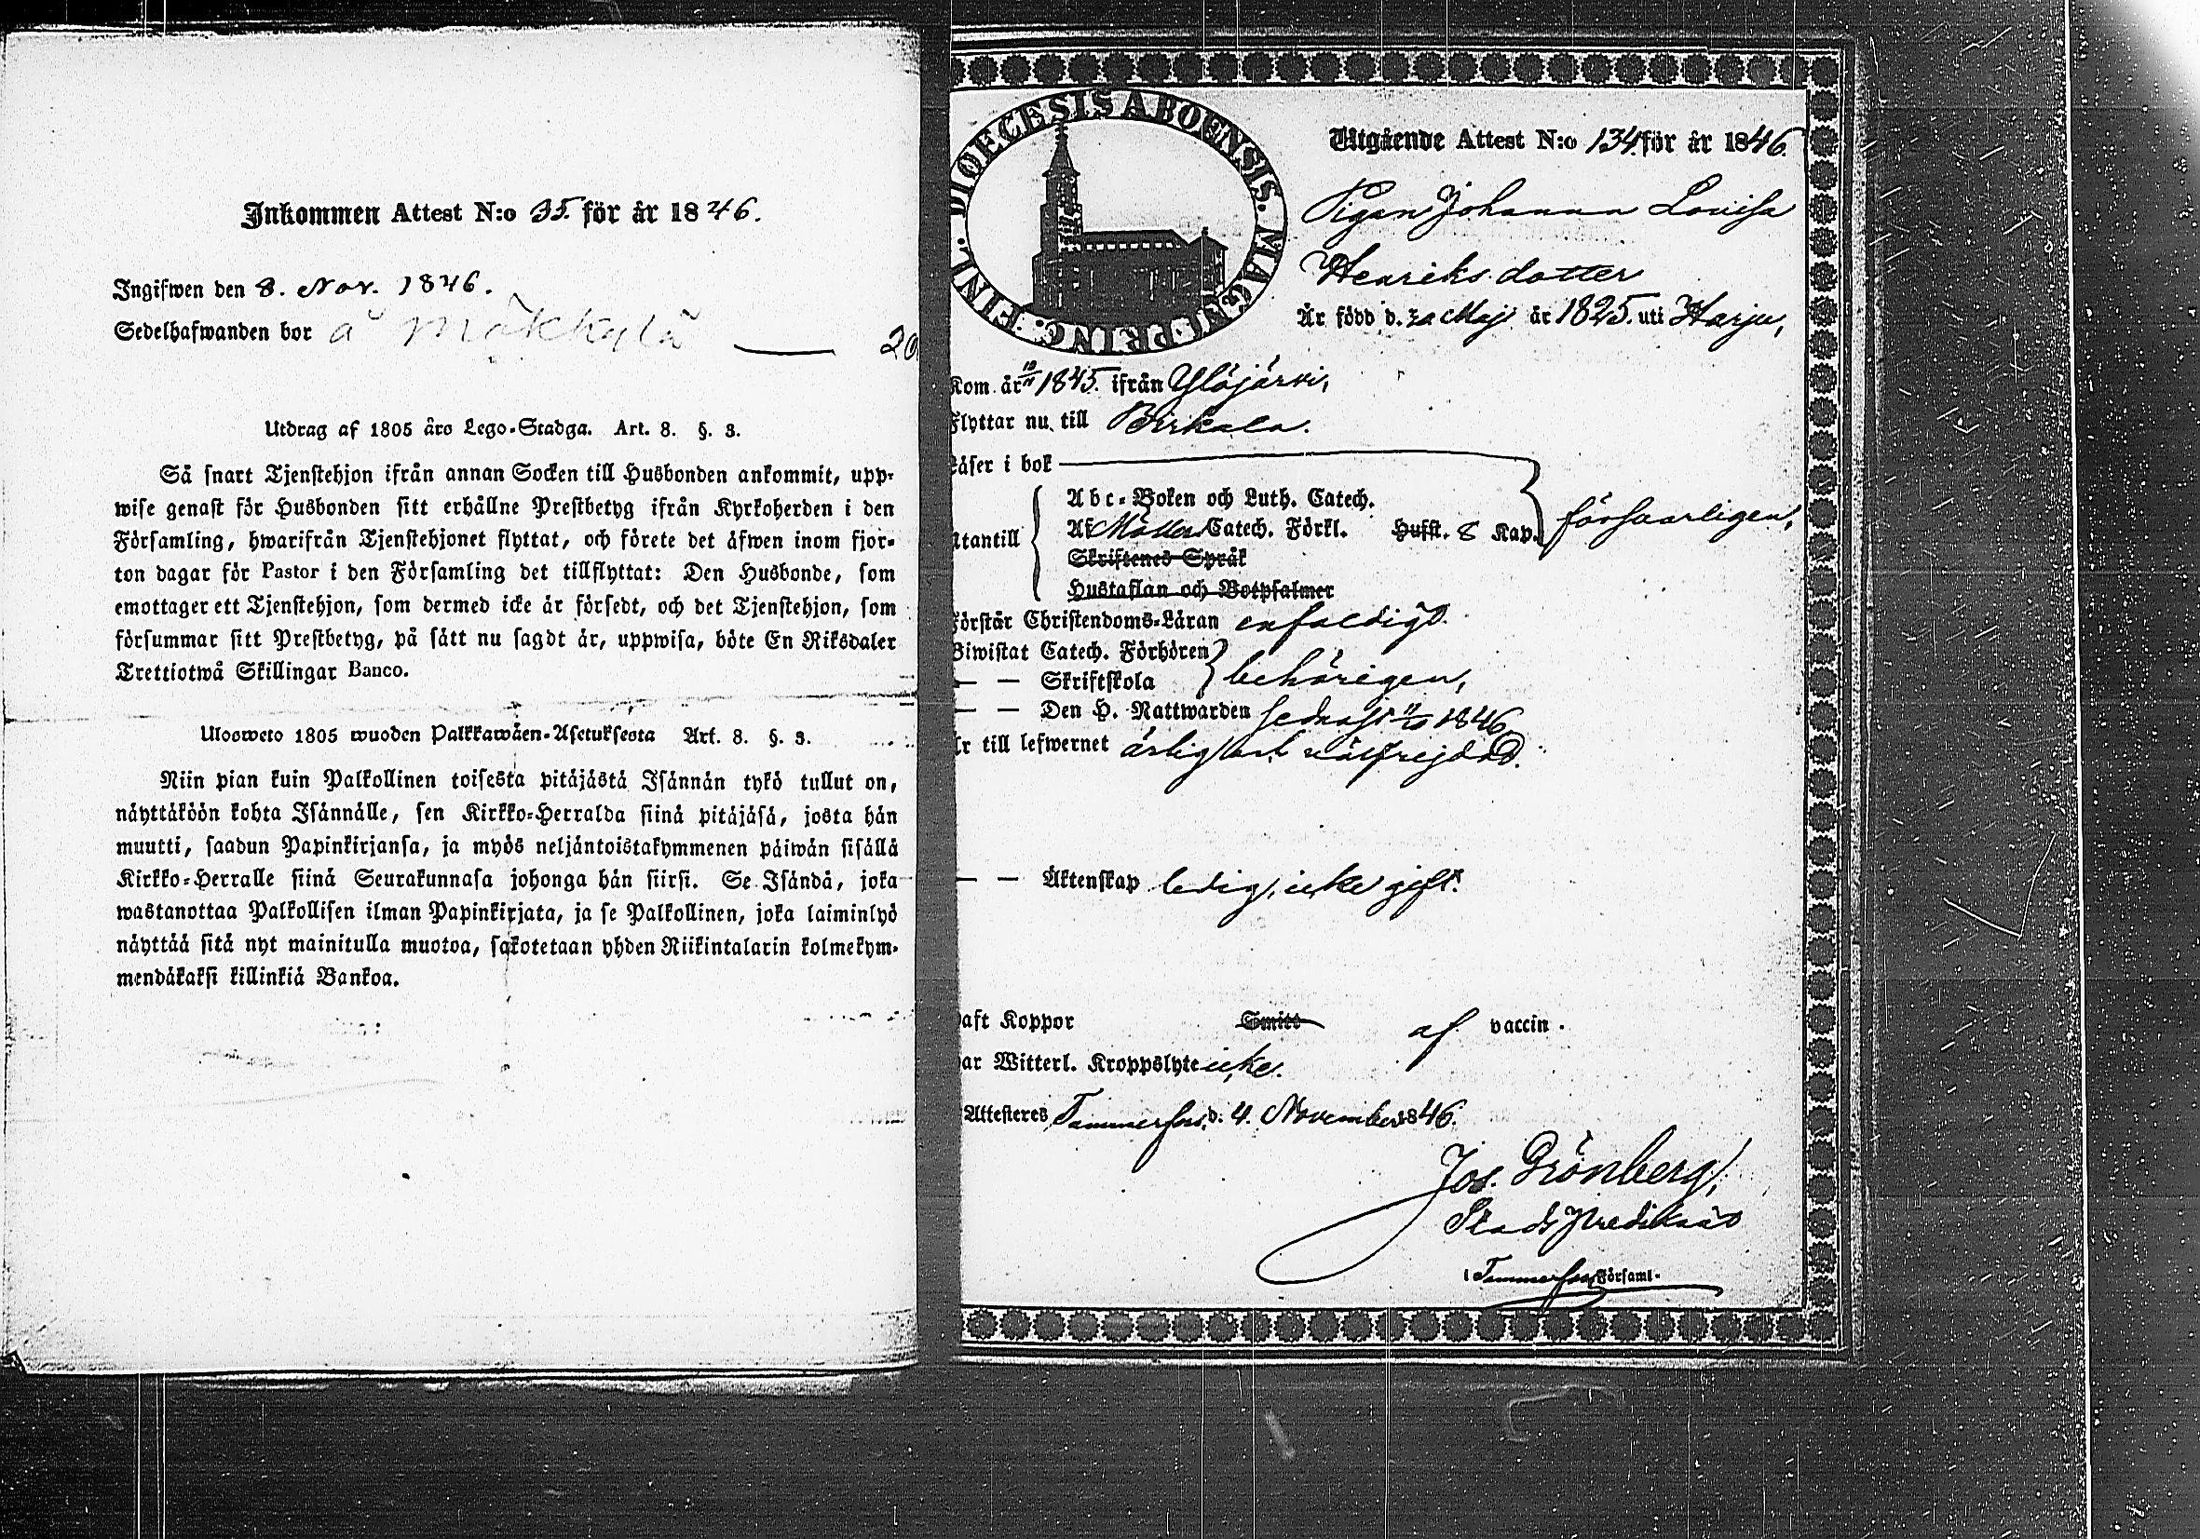 Inkommen Attest N:o 35. för år 1846.
Ingifwen den 8. Nov. 1846.
Sedelhafwanden bor å Mäkkylä — 20
Utdrag af 1805 åro Lego-Stadga. Art. 8. §. 3.
Så snart Tjenstehjon ifrån annan Socken till Husbonden ankommit, upp-
wise genast för Husbonden sitt erhållne Prestbetyg ifrån Kyrkoherden i den
Församling, hwarifrån Tjenstehjonet flyttat, och förete det äfwen inom fjor-
ton dagar för Pastor i den Församling det tillflyttat: Den Husbonde, som
emottager ett Tjenstehjon, som dermed icke är försedt, och det Tjenstehjon, som
försummar sitt Prestbetyg, på sätt nu sagdt är, uppwisa, böte En Riksdaler
Trettiotwå Skillingar Banco.
Ulosweto 1805 wuoden Palkkawäen-Asetuksesta Art. 8. §. 3.
Niin pian kuin Palkollinen toisesta pitäjästä Isännän tykö tullut on,
näyttäköön kohta Isännälle, sen Kirkko-Herralda siinä pitäjäsä, josta hän
muutti, saadun Papinkirjansa, ja myös neljäntoistakymmenen päiwän sisällä
Kirkko-Herralle siinä Seurakunnasa johonga hän siirsi. Se Isändä, joka
wastanottaa Palkollisen ilman Papinkirjata, ja se Palkollinen, joka laiminlyö
näyttää sitä nyt mainitulla muotoa, sakotetaan yhden Riikintalarin kolmekym-
mendäkaksi killinkiä Bankoa.
DIOECESIS ABOENSIS. MAGNI PRINC. FINL.
Utgående Attest N:o 134 för år 1846.
Pigan Johanna Lovisa
Henriksdotter
Är född d. Maj år 1825. uti Harju,
Kom. år 1845. ifrån Ylöjärvi,
Flyttar nu till Birkala.
Läser i bok
Abc-Boken och Luth. Catech.
Utantill Af Möllers Catech. Förkl. Husst. 8 Kap. försvarligen,
Skriftenes Språk
Hustaflan och Botpsalmer
Förstår Christendoms-Läran enfaldigt.
Biwistat Catech. Förhören
— — Skriftskola behörigen,
— — Den H. Nattwarden sednast 11/10 1846,
Är till lefwernet ärlig och välfrejdad.
— — Äktenskap ledig, icke gift.
Haft Koppor Smitt af vaccin.
Har Witterl. Kroppslyte icke.
Attesteres Tammerfors, d. 4. November 1846.
Jos. Grönberg,
Stads Predikant
i Tammerfors Församl.